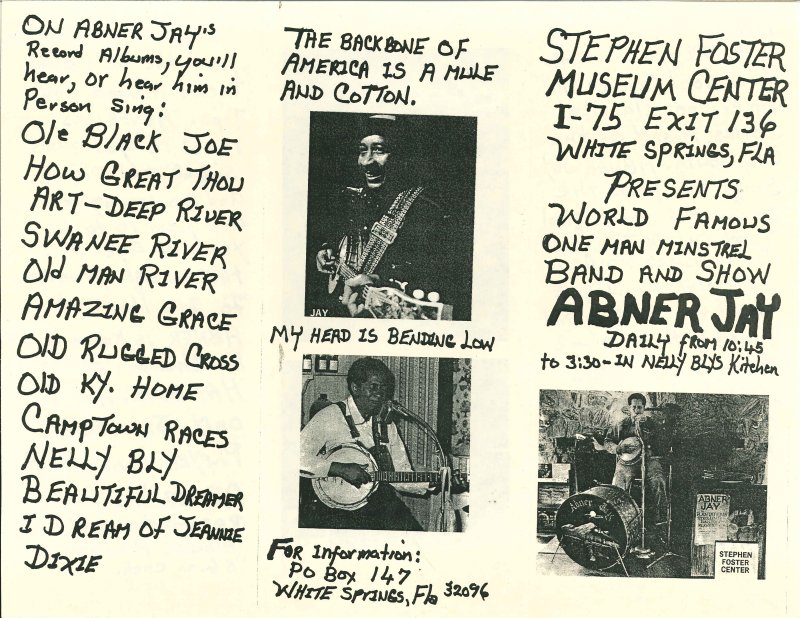 ON ABNER JAY'S
Record Albums, you'll
hear, or hear him in
Person Sing:
Ole BLACK JOE
HOW GREAT THOU
ART-DEEP RIVER
SWANEE RIVER
Old MAN RIVER
AMAZING GRACE
OlD RUGGED CROSS
OlD KY. HOME
CAMPTOWN RACES
NELLY BLY
BEAUTIFUL DREAMER
I DREAM OF JEANNIE
DIXIE
THE BACKBONE OF
AMERICA IS A MULE
AND COTTON.
JAY
MY HEAD IS BENDING LOW
FOR Information:
PO BOX 147
WHITE SPRINGS, Fla 32096
STEPHEN FOSTER
MUSEUM CENTER
I-75 EXIT 136
WHITE SPRINGS, FLA
PRESENTS
WORLD FAMOUS
ONE MAN MINSTREL
BAND AND SHOW
ABNER JAY
DAILY from 10:45
to 3:30-IN NELLY BLYS Kitchen
Abner Jay
ABNER
JAY
STEPHEN
FOSTER
CENTER